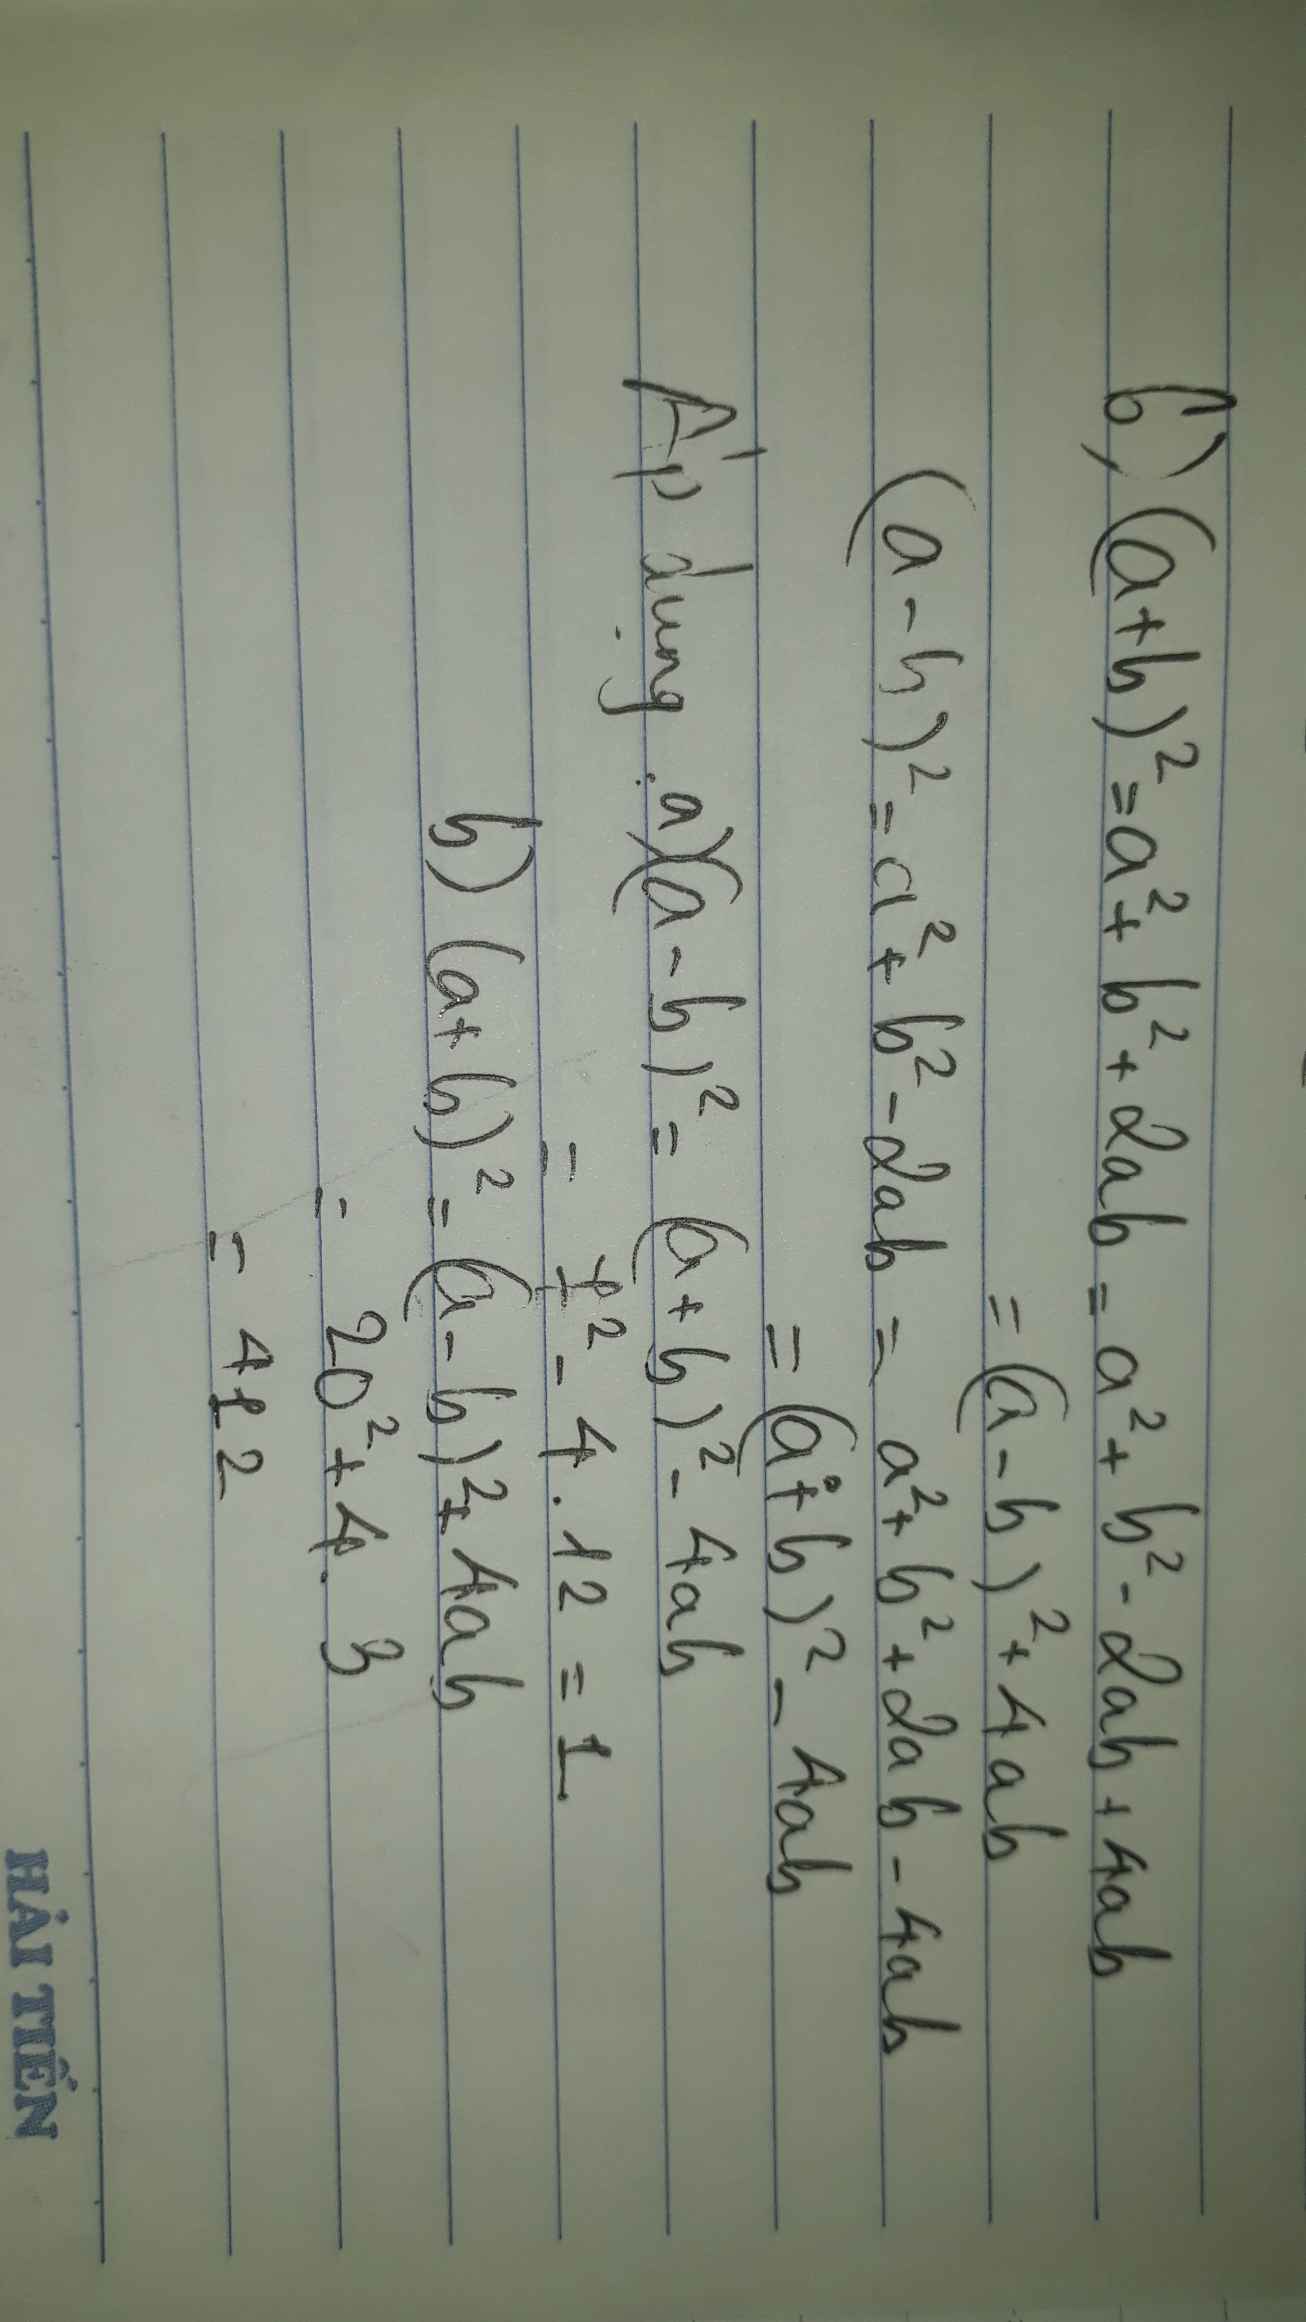 6) (a+b)² = a² + b² + 2ab = a² + b² - 2ab + 4ab
= (a-b)² + 4ab
(a-b)² = a² + b² - 2ab = a² + b² + 2ab - 4ab
= (a+b)² - 4ab
Áp dụng: a) (a-b)² = (a+b)² - 4ab
= 7² - 4.12 = 1
b) (a+b)² = (a-b)² + 4ab
= 20² + 4.3
= 412
HẢI TIẾN